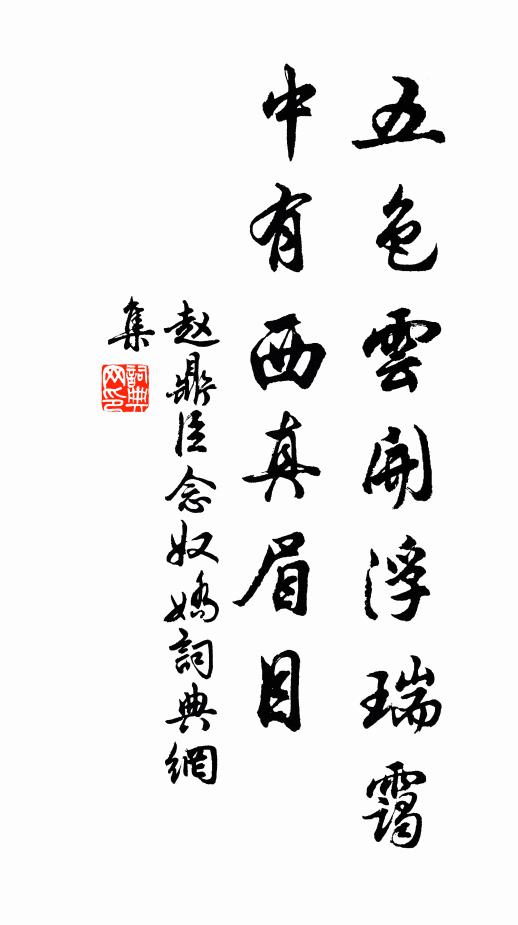 五色雲開浮瑞靄
中有西真眉目
赵鼎臣念奴嬌詞典網
集
詞典
网印